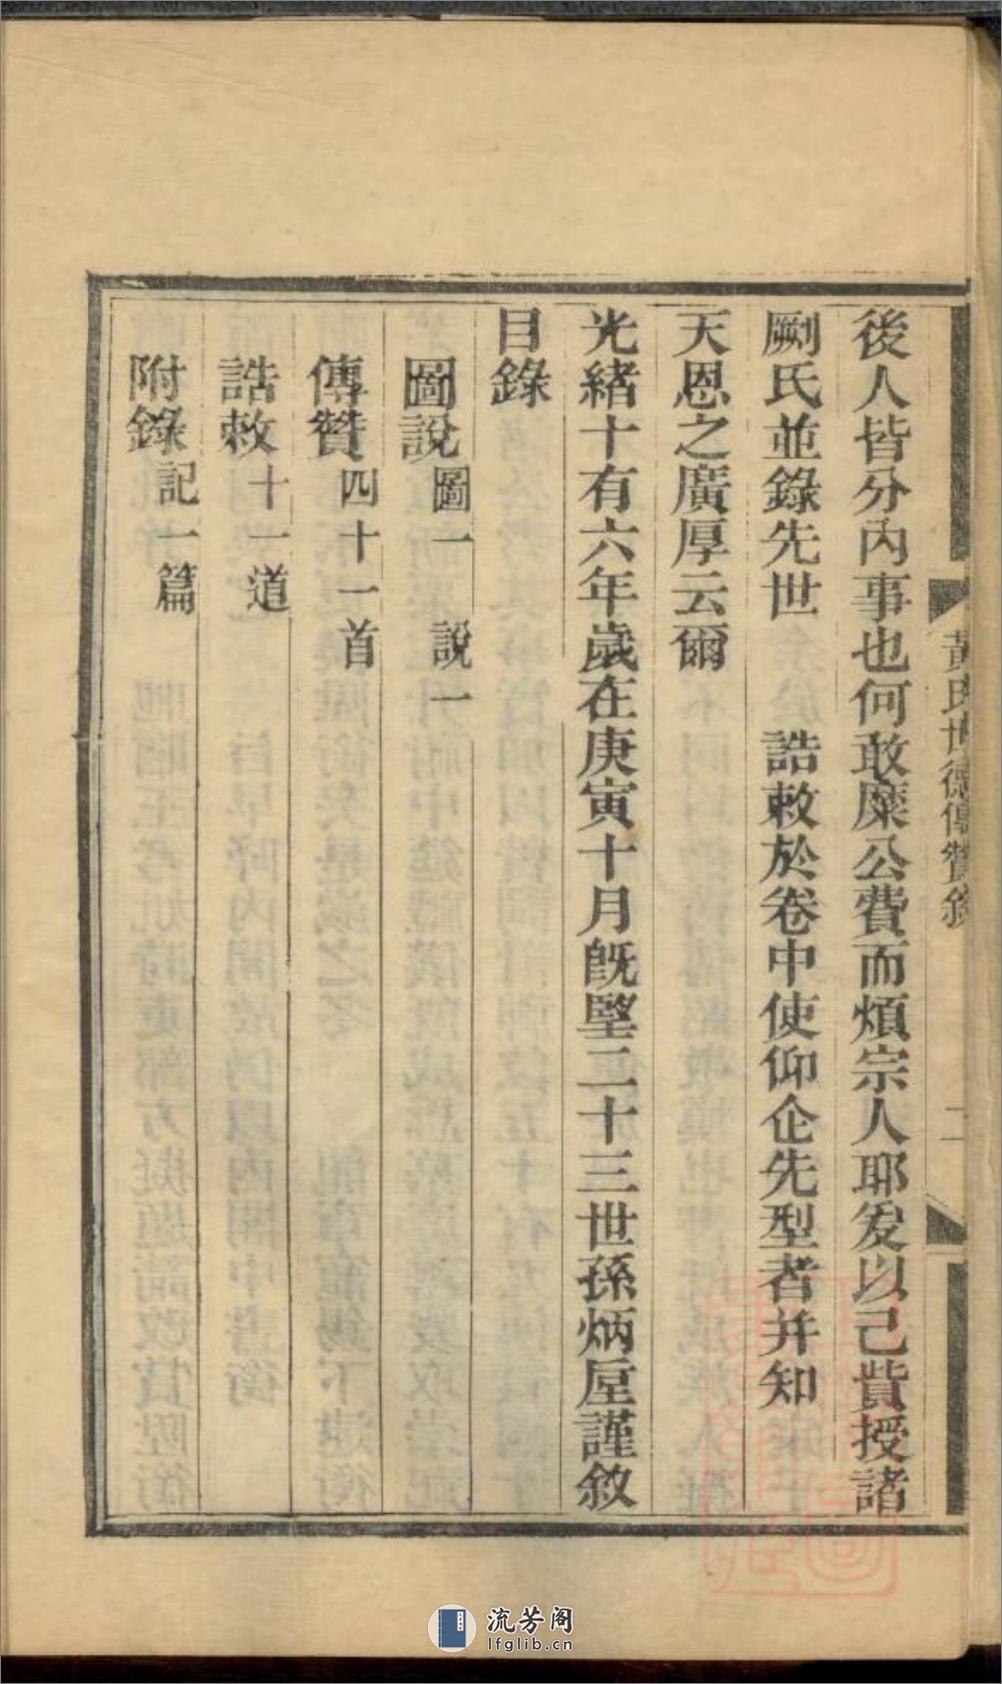 黃氏世德傳贊錄
二
後人皆分內事也何敢糜公費而煩宗人耶爰以己貲授諸
劂氏並錄先世　誥敕於卷中使仰企先型者并知
天恩之廣厚云爾
光緒十有六年歲在庚寅十月旣墍二十三世孫炳垕謹敘
目錄
圖說 圖一 說一
傳贊 四十一首
誥敕 十一道
附錄 記一篇
流芳阁
lfglib.cn